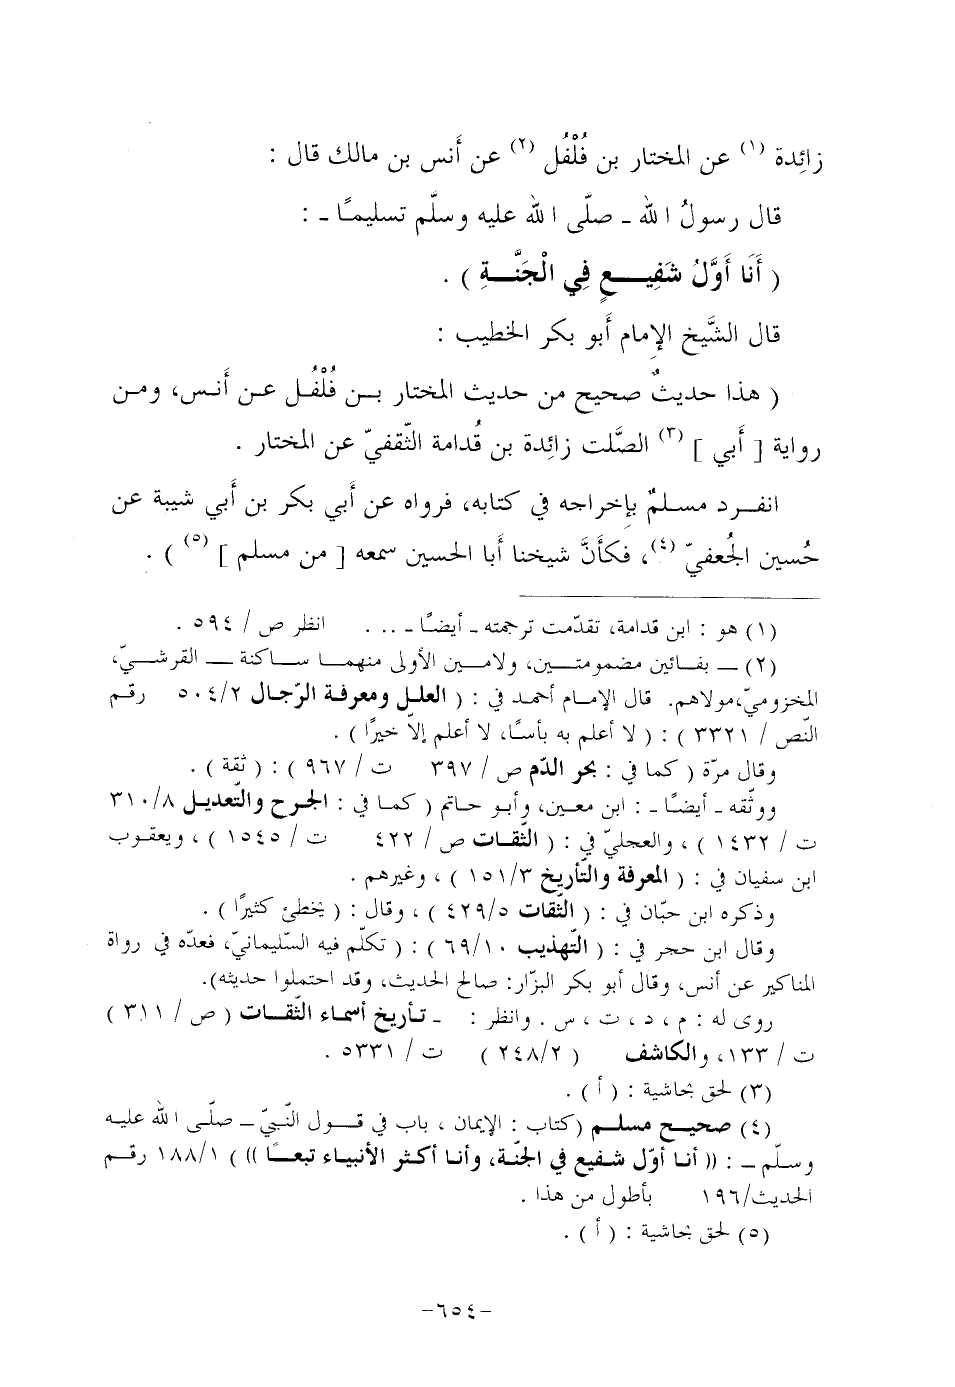 زائِدة (١) عن المختار بن فُلْفُل (٢) عن أَنس بن مالك قال :
قال رسولُ الله - صلَّى الله عليه وسلَّم تسليمًا - :
( أَنَا أَوَّلُ شَفِيـــعٍ فِي الْجَنَّـــةِ ) .
قال الشَّيخ الإمام أَبو بكر الخطيب :
( هذا حديثٌ صحيح من حديث المختار بــن فُلْفُــل عــن أَنــس، ومــن
رواية [ أَبي ] (٣) الصَّلت زائِدة بن قُدامة الثَّقفيّ عن المختار .
انفــرد مســلمٌ بإخراجه في كتابه، فرواه عن أَبي بكر بن أَبي شيبة عن
حُسين الجُعفيّ (٤)، فكأَنَّ شيخنا أَبا الحسين سمعه [ من مسلم ] (٥) ) .
(١) هو : ابن قدامة، تقدّمت ترجمته - أيضًا - ... . انظر ص / ٥٩٤ .
(٢) — بفــائين مضمومتــين، ولامــين الأولى منهمــا ســاكنة — القرشــيّ،
المخزوميّ،مولاهم. قال الإمــام أحمــد في : ( العلــل ومعرفــة الرّجال ٥٠٤/٢ رقــم
النّص / ٣٣٢١ ) : ( لا أعلم به بأسًا، لا أعلم إلاّ خيرًا ) .
وقال مرّة ( كما في : بحر الدّم ص / ٣٩٧ ت / ٩٦٧ ) : ( ثقة ) .
ووثّقه - أيضًا - : ابن معــين، وأبــو حــاتم ( كمــا في : الجــرح والتّعديــل ٣١٠/٨
ت / ١٤٣٢ ) ، والعجليّ في : ( الثّقــات ص / ٤٢٢ ت / ١٥٤٥ ) ، ويعقــوب
ابن سفيان في : ( المعرفة والتّأريخ ١٥١/٣ ) ، وغيرهم .
وذكره ابن حبّان في : ( الثّقات ٤٢٩/٥ ) ، وقال : ( يخطئ كثيرًا ) .
وقال ابن حجر في : ( التّهذيب ٦٩/١٠ ) : ( تكلّم فيه السّليمانيّ، فعدّه في رواة
المناكير عن أنس، وقال أبو بكر البزّار: صالح الحديث، وقد احتملوا حديثه).
روى له : م ، د ، ت ، س . وانظر : - تــأريخ أسمــاء الثّقــات ( ص / ٣١١ )
ت / ١٣٣، والكاشف ( ٢٤٨/٢ ) ت / ٥٣٣١ .
(٣) لحق بحاشية : ( أ ) .
(٤) صحيــح مســلم (كتاب : الإيمان ، باب في قــول النّبيّ — صلّى الله عليــه
وسلّم - : (( أنــا أوّل شــفيع في الجنّــة، وأنــا أكثــر الأنبيــاء تبعــًا )) ) ١٨٨/١ رقــم
الحديث/١٩٦ بأطول من هذا .
(٥) لحق بحاشية : ( أ ) .
-٦٥٤-